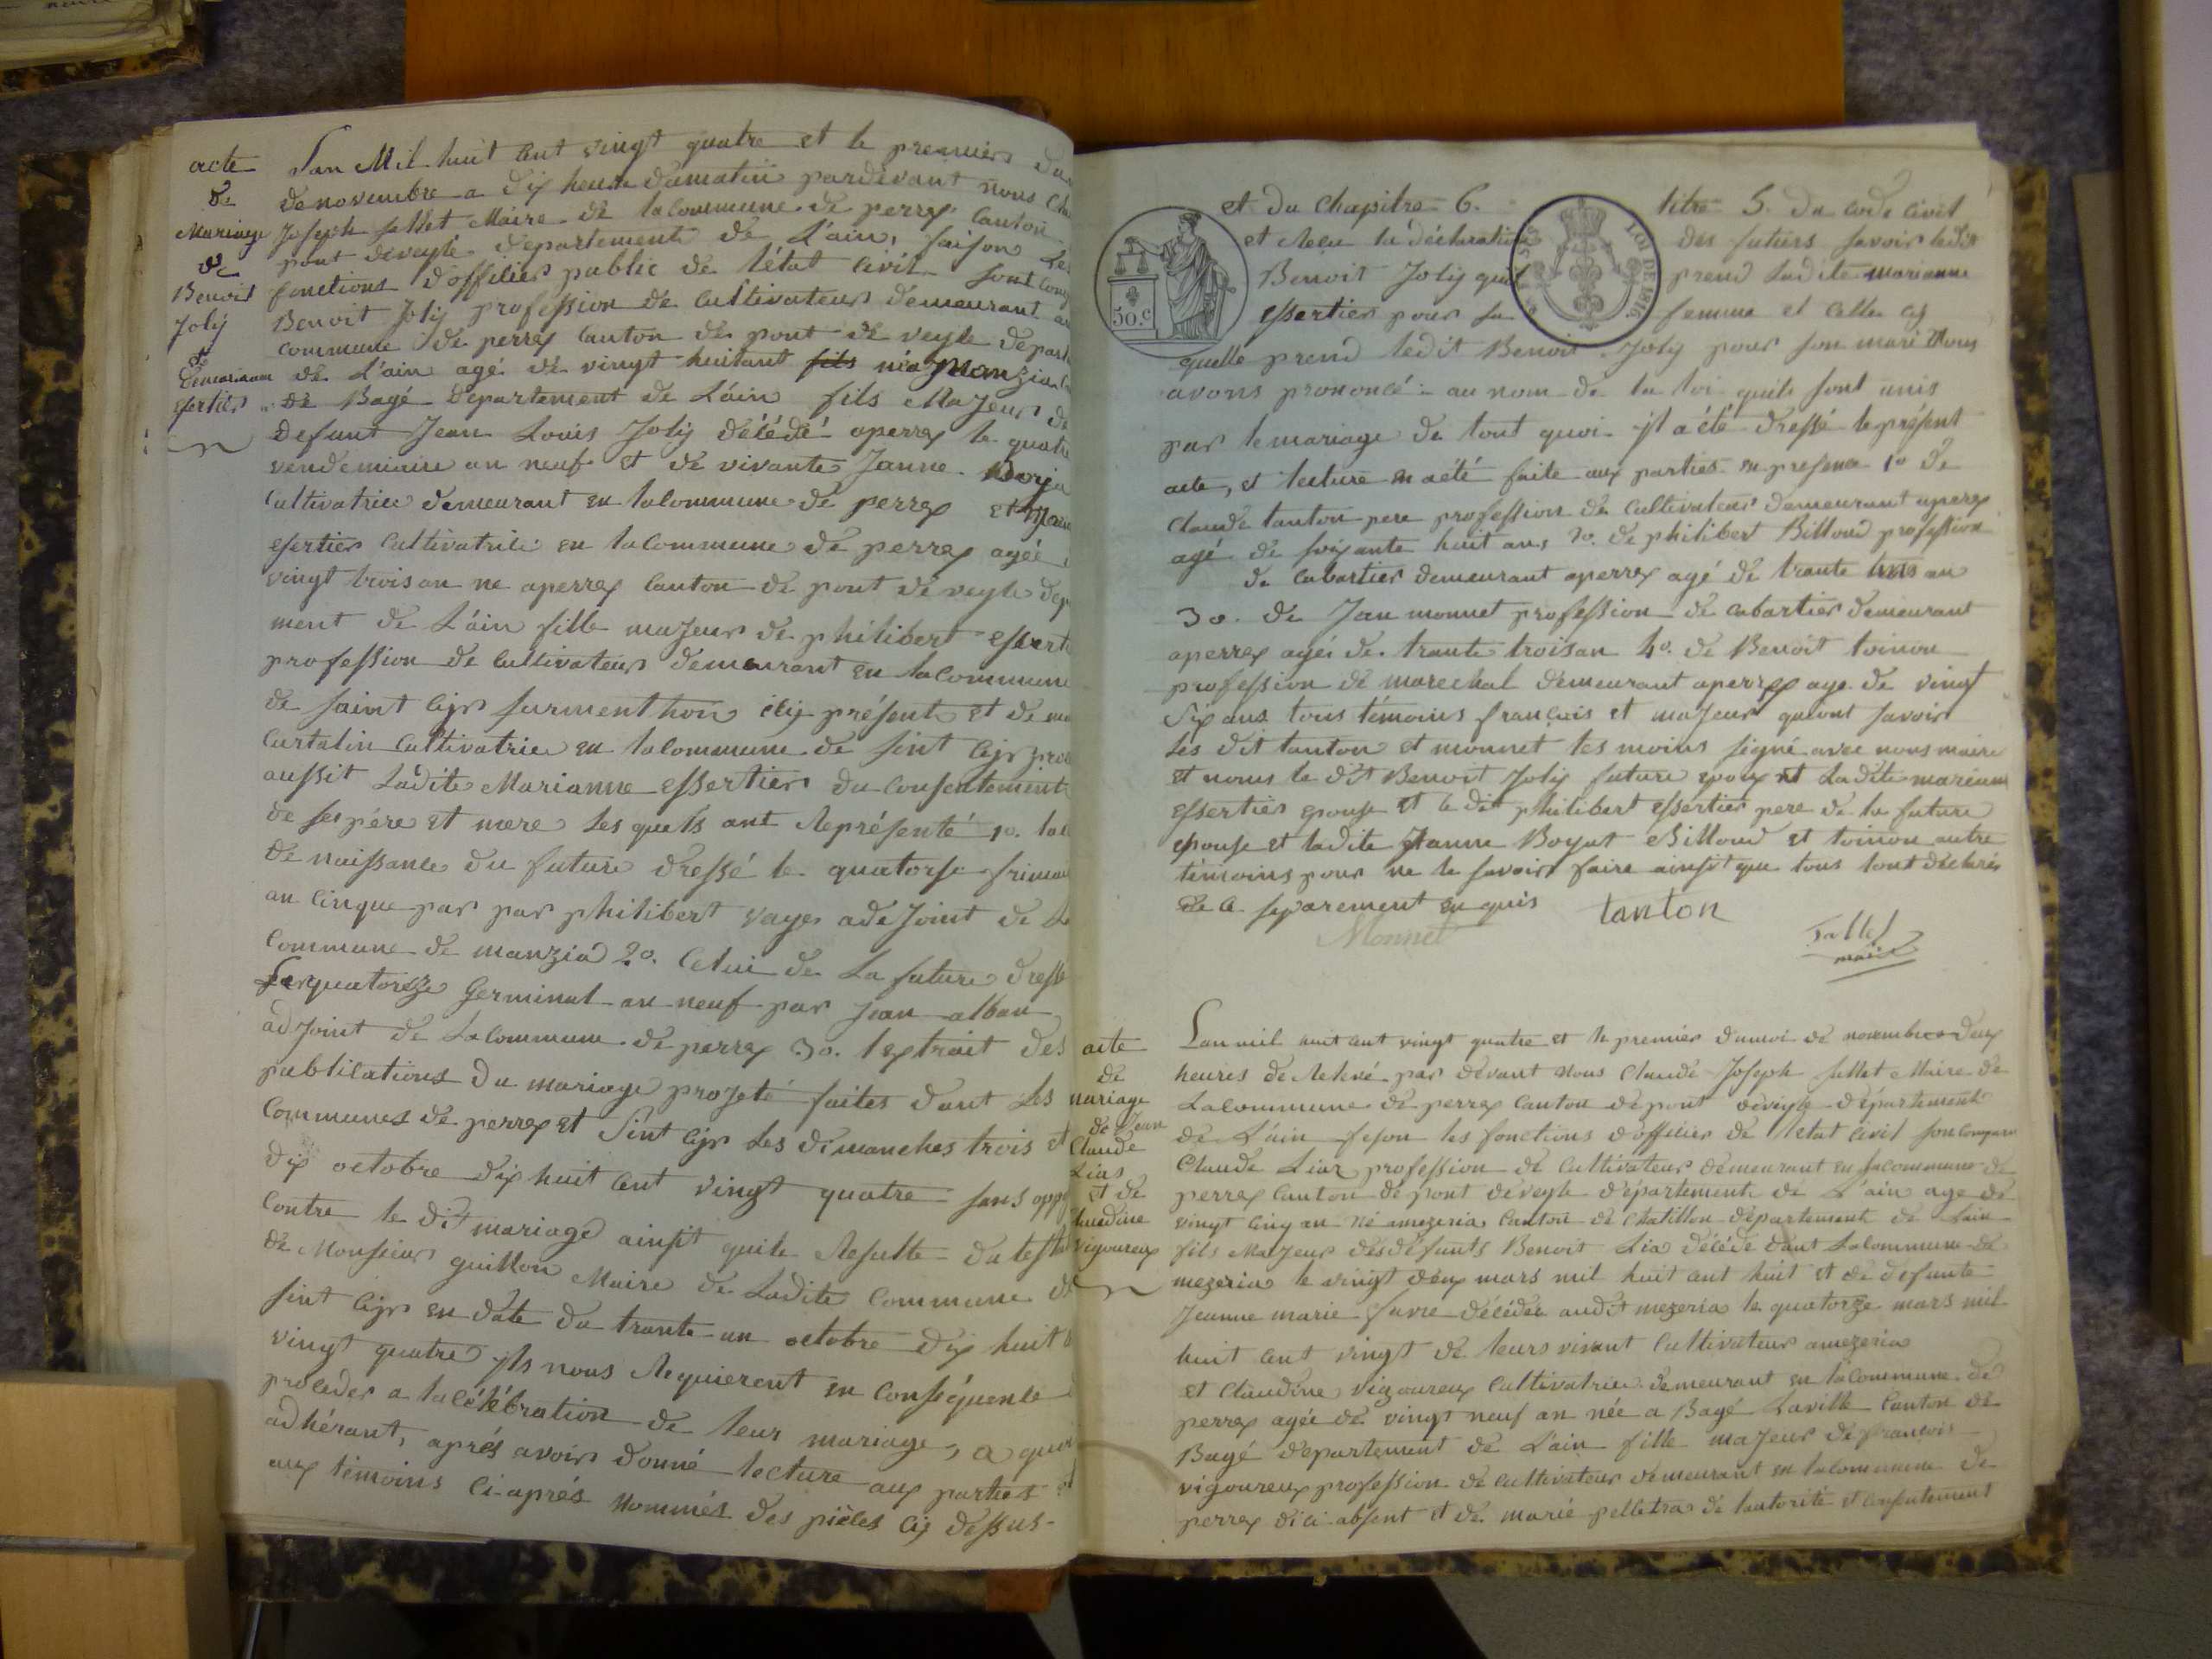 acte
de
Mariage
de
Benoit
Joly
&
demarianne
esertier
Lan Mil huit Cent vingt quatre et le premier du
de novembre a dix heure dumatin pardevant nous
Joseph sallet Maire de la commune de perrex Canton
pont deveyle departement de L'ain, faison les
fonctions d'officier public de l'état Civil sont
Benoit Joly profession de Cultivateur demeurant
commune de perrex Canton de pont de veyle
de L'ain agé de vingt huitant né a manzia
de Bagé departement de L'ain fils Majeur de
defunt Jean Louis Joly décédé aperrex le quatre
vendemiaire an neuf et de vivante Janne
Cultivatrice demeurant en la Commune de perrex et
esertier Cultivatrice en la Commune de perrex agée
vingt trois an ne aperrex Canton de pont de veyle
ment de L'ain fille majeur de philibert
profession de Cultivateur demeurant en la Commune
de saint Cyr surmenthon icy présent et de
Curtalin Cultivatrice en la Commune de sint Cyr
aussit Ladite Marianne essertier du Consentement
de ses père et mere les quels ont Représenté 1o.
de naissance du future dressé le quatorse
an Cinque par par philibert vayer adeJoint de
Commune de manzia 2o. Celui de La future
quatorze Germinal an neuf par Jean alban
adJoint de La Commune de perrex 3o. lextrait des
publications du mariage projeté faites dant Les
Communes de perrex et Sint Cyr Les dimanches trois et
dix octobre dix huit Cent vingt quatre sans
Contre le dit mariage ainsit quile Resulte
de Monsieur guillon Maire de Ladite Commune
sint Cyr en date du trante un octobre dix huit
vingt quatre jls nous Requierent en Conséquence
proceder a la célébration de leur mariage, a
adhérant, après avoir donné lecture aux parties
aux témoins Ci-après Nommés des pièces Cy dessus
et du Chapitre 6. titre 5. du Code Civil
et Recu la déclaration des futurs savoir ledit
Benoit Joly quil prend Ladite marianne
essertier pour sa femme et Celle cy
quelle prend ledit Benoit Joly pour son mari Nous
avons prononcé au nom de la loi quile sont unis
par le mariage de tout quoi jl a été dressé le présent
acte, et lecture en aété faite aux parties en presence 1o de
Claude tanton pere profession de Cultivateur demeurant aperrex
agé de soixante huit ans 2o. de philibert Billoud profession
de Cabartier demeurant aperrex agé de trante an
3o. de Jean monnet profession de Cabartier demeurant
aperrex agé de trante troisan 4o. de Benoit toinon
profession de marechal demeurant aperrex age de vingt
Six ans tous témoins français et majeur quiont savoir
Les dit tanton et monnet tes moins signé avec nous maire
et nonus le dit Benoit Joly future epoux et Ladite marianne
essertier epouse et le dit philibert essertier pere de la future
epouse et ladite Jeanne Boyat Billoud et toinon autre
témoins pour ne le savoir faire ainsit que tous lont déclarés
de Ce separement en quis
tanton
Monnet
Sallet
maire
acte
de
mariage
de Jean
Claude
Lias
et de
Claudine
vigoureux
Lan mil huit Cent vingt quatre et le premier dumoi de novembre a deux
heures de Relevé par devant nous Claude Joseph sallet Maire de
LaCommune de perrex Canton de pont deveyle département
de L'ain feson les fonctions d'officier de letat Civil son
Claude Liaz profession de Cultivateur demeurant en laCommune de
perrex Canton de pont de veyle département de L'ain age de
vingt Cinq an né amezeria Canton de Chatillon departement de Lain
fils Majeur des défunts Benoit Lia décédé dant La Commune de
mezeria le vingt deux mars mil huit Cent huit et de defunte
Jeanne marie favre décédée audit mezeria le quatorze mars mil
huit Cent vingt de leurs vivant Cultivateur amezeria
et Claudine vigoureux Cultivatrice demeurant en la Commune de
perrex agée de vingt neuf an née a Bagé Laville Canton de
Bagé departement de L'ain fille majeur de francois
vigoureux profession de Cultivateur demeurant en la Commune de
perrex dici absent et de marie pelletra de lautorité et Consentement